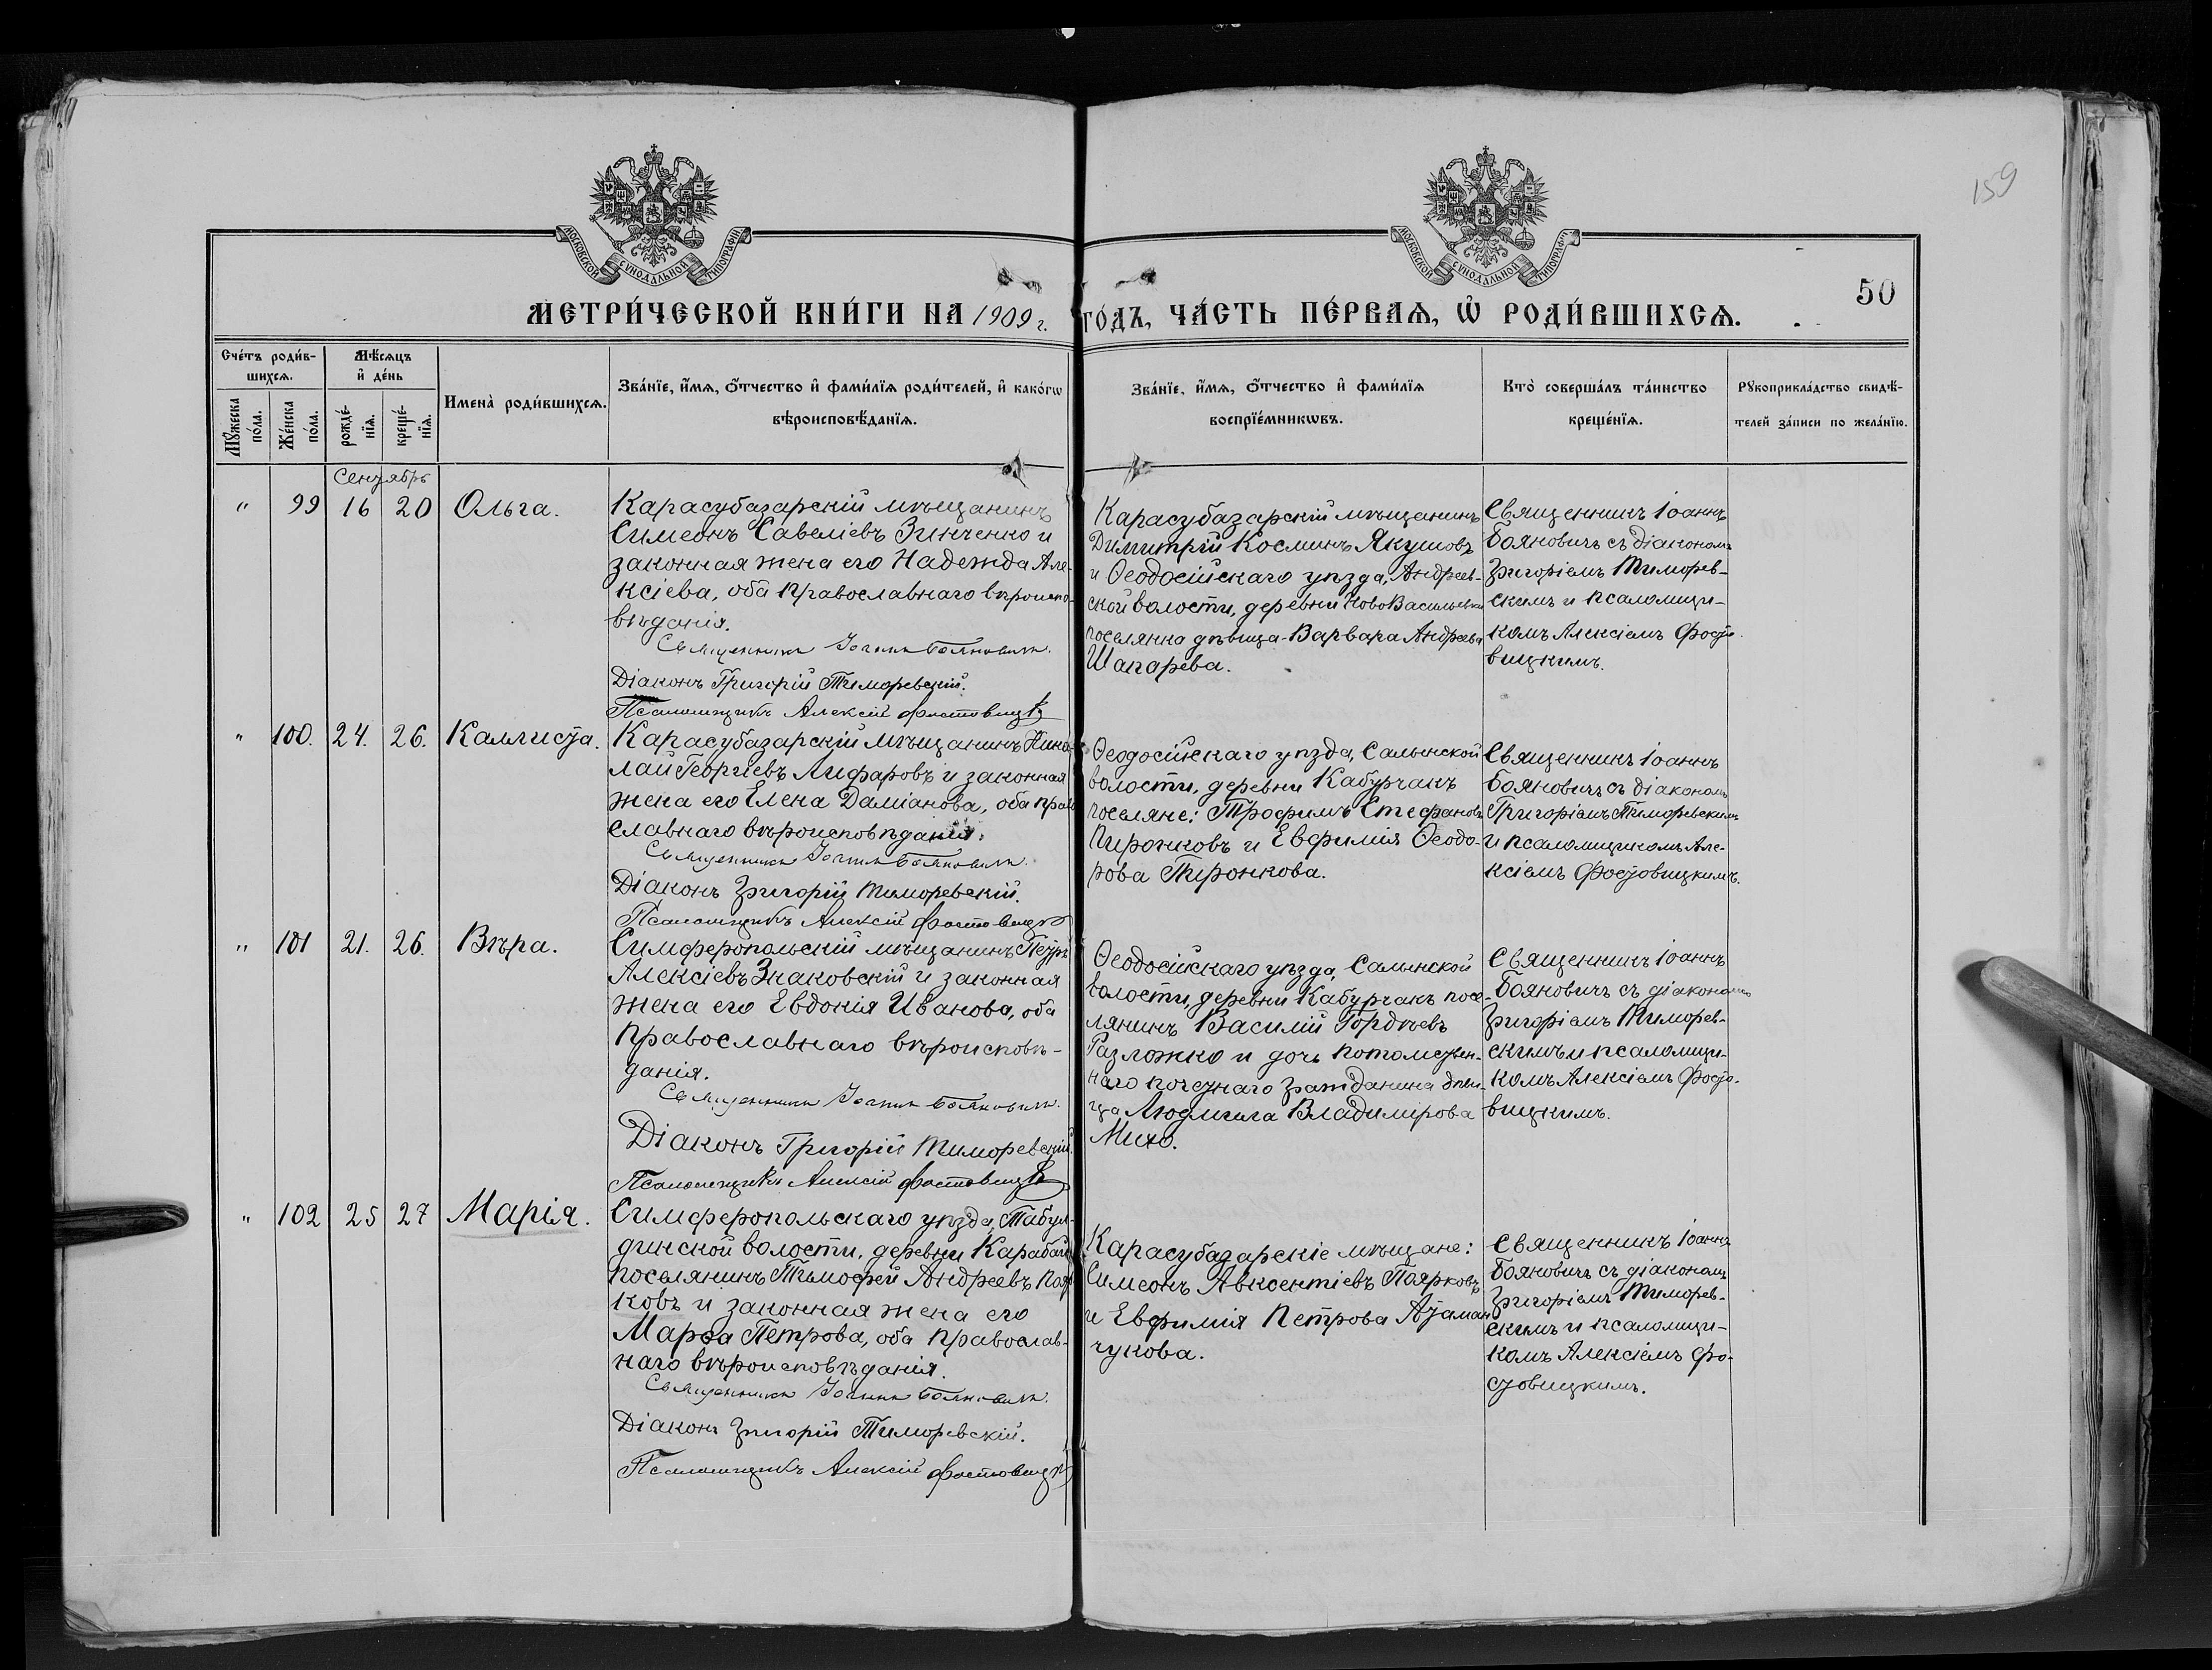 159
МОСКОВСКОЙ СѴНОДАЛЬНОЙ ТИПОГРАФІИ
МОСКОВСКОЙ СѴНОДАЛЬНОЙ ТИПОГРАФІИ
50
МЕТРИ́ЧЕСКОЙ КНИ́ГИ НА 1909 г. ГО́ДЪ, ЧА́СТЬ ПЕ́РВАѦ, Ѡ҆ РОДИ́ВШИХСѦ.
Сче́тъ роди́в-
шихсѧ.
Мѣ́сѧцъ
и҆ де́нь
Мꙋ́жеска
по́ла.
Же́нска
по́ла.
рожде́-
нїѧ.
креще́-
нїѧ.
Имена̀ роди́вшихсѧ.
Зва́нїе, и҆́мѧ, ѻ҆́тчество и҆ фами́лїѧ роди́телей, и҆ како́гѡ
вѣроисповѣ́данїѧ.
Зва́нїе, и҆́мѧ, ѻ҆́тчество и҆ фами́лїѧ
воспрїе́мникѡвъ.
Кто̀ соверша́лъ та́инство
креще́нїѧ.
Рꙋкоприкла́дство свидѣ́-
телей за́писи по жела́нїю.
Сентябрь
" 99 16 20 Ольга.
Карасубазарскій мѣщанинъ
Симеонъ Савеліевъ Зинченко и
законная жена его Надежда Але-
ксіева, оба православнаго вѣроиспо-
вѣданія.
Священникъ Іоаннъ Бояновичъ.
Діаконъ Григорій Тиморевскій.
Псаломщикъ Алексій Фостовицкій
Карасубазарскій мѣщанинъ
Димитрій Косминъ Якушовъ
и Ѳеодосійскаго уѣзда, Андреев-
ской волости, деревни НовоВасильевки
поселянка дѣвица Варвара Андреева
Шапарева.
Священникъ Іоаннъ
Бояновичъ съ діакономъ
Григоріемъ Тиморев-
скимъ и псаломщи-
комъ Алексіемъ Фосто-
вицкимъ.
" 100. 24. 26. Каллиста.
Карасубазарскій мѣщанинъ Нико-
лай Георгіевъ Лифаровъ и законная
жена его Елена Даміанова, оба право
славнаго вѣроисповѣданія.
Священникъ Іоаннъ Бояновичъ.
Діаконъ Григорій Тиморевскій.
Псаломщикъ Алексій Фостовицкій
Ѳеодосійскаго уѣзда, Салынской
волости, деревни Кабурчакъ
поселяне: Трофимъ Стефановъ
Пиронковъ и Евфимія Ѳеодо-
рова Пиронкова.
Священникъ Іоаннъ
Бояновичъ съ діакономъ
Григоріемъ Тиморевскимъ
и псаломщикомъ Але-
ксіемъ Фостовицкимъ.
" 101 21. 26. Вѣра.
Симферопольскій мѣщанинъ Петръ
Алексіевъ Знаковскій и законная
жена его Евдокія Иванова, оба
православнаго вѣроисповѣ-
данія.
Священникъ Іоаннъ Бояновичъ.
Діаконъ Григорій Тиморевскій.
Псаломщикъ Алексій Фостовицкій
Ѳеодосійскаго уѣзда, Салынской
волости, деревни Кабурчакъ посе-
лянинъ Василій Гордѣевъ
Разложко и дочь потомствен-
наго почетнаго гражданина дѣви-
ца Людмила Владимірова
Михо.
Священникъ Іоаннъ
Бояновичъ съ діакономъ
Григоріемъ Тиморев-
скимъ и псаломщи-
комъ Алексіемъ Фосто-
вицкимъ.
" 102 25 27 Марія.
Симферопольскаго уѣзда, Табул-
динской волости, деревни Карабай
поселянинъ Тимофей Андреевъ Пояр
ковъ и законная жена его
Марѳа Петрова, оба православ-
наго вѣроисповѣданія.
Священникъ Іоаннъ Бояновичъ.
Діаконъ Григорій Тиморевскій.
Псаломщикъ Алексій Фостовицкій
Карасубазарскіе мѣщане:
Симеонъ Авксентіевъ Поярковъ
и Евфимія Петрова Атаман
чукова.
Священникъ Іоаннъ
Бояновичъ съ діакономъ
Григоріемъ Тиморев-
скимъ и псаломщи-
комъ Алексіемъ Фо-
стовицкимъ.